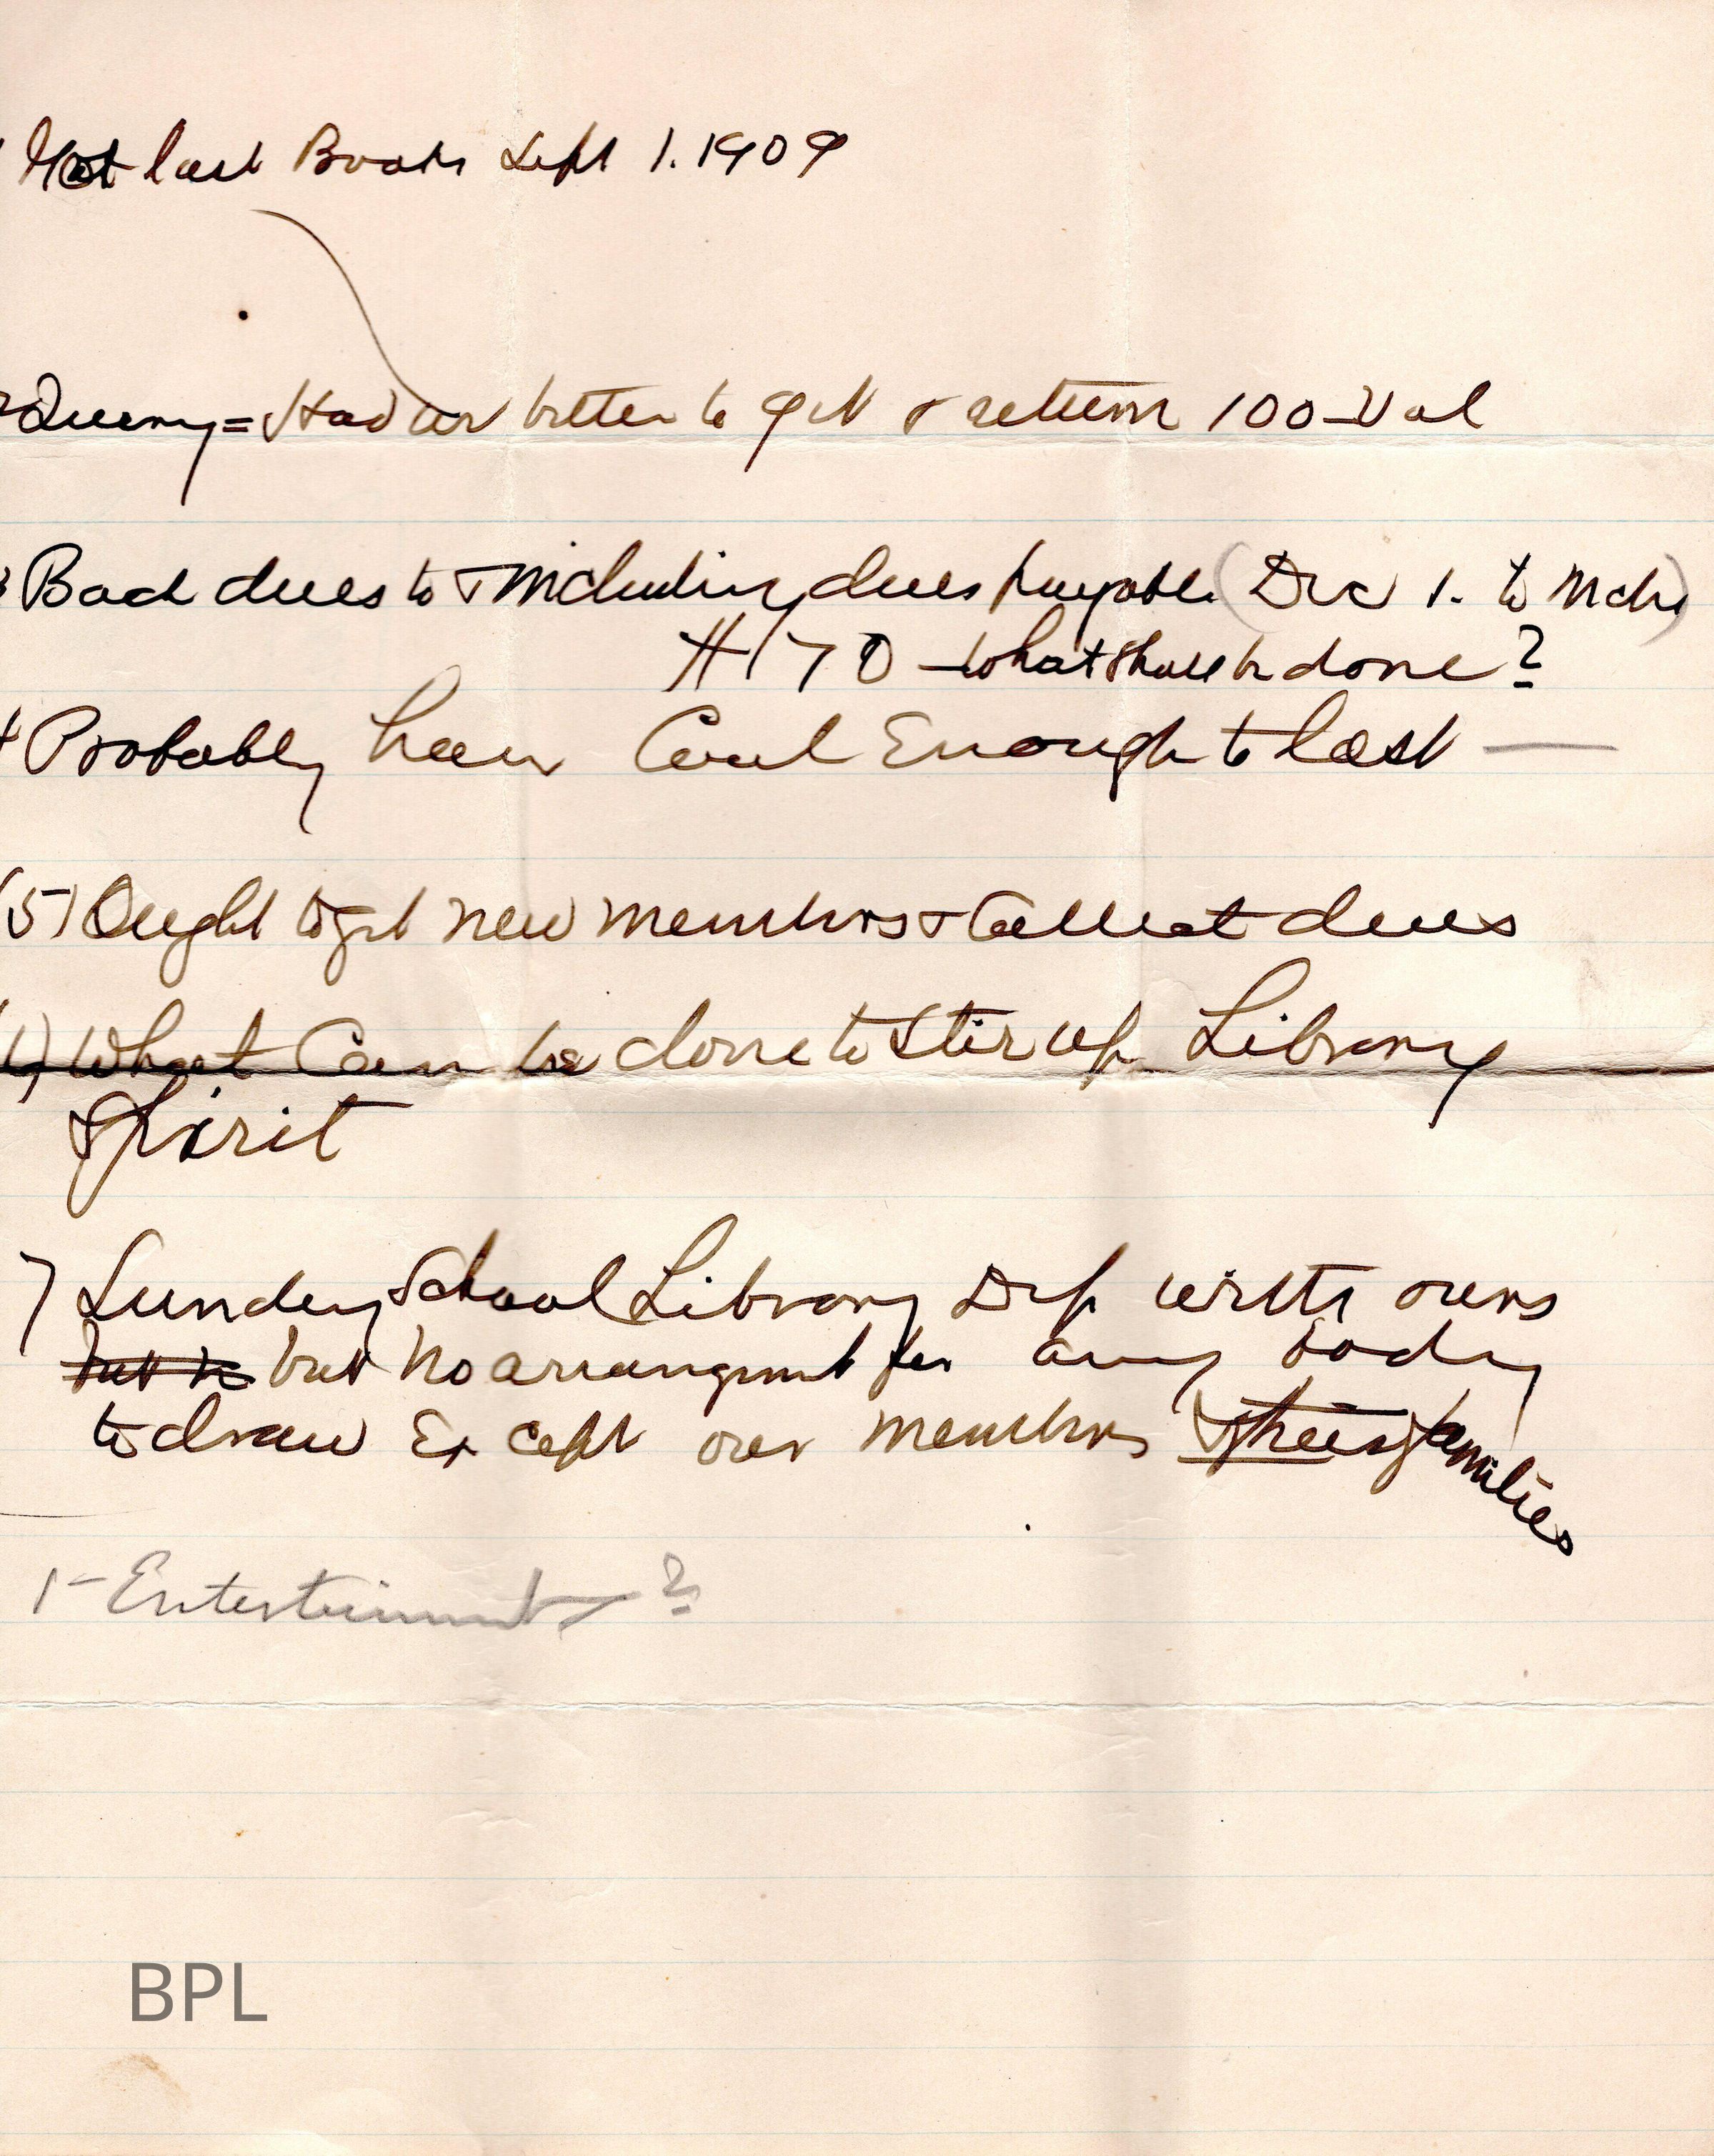 Got last Books Sept 1. 1909
Query = Had we better to get & return 100 Vol
Back dues to & including dues payable (Dec 1. to Mch)
$170 - what shall be done?
4 Probably have Coal Enough to last —
(5) Ought to get new members & Collect dues
What Can be done to Stir up Library
Spirit
7) Sunday School Library Dep with ours
but n but no arrangment for any body
to draw Except our members & their families
Entertainment ?
BPL